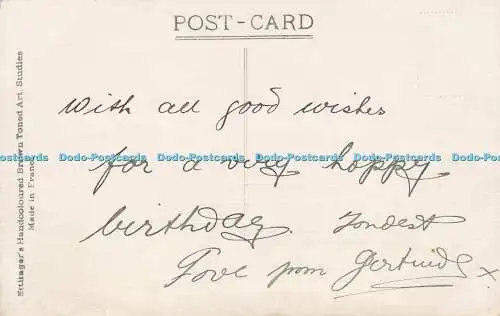 POST-CARD
Ettlinger's Handcoloured Brown Toned Art. Studies
Made in France
With all good wishes
Dodo-Postcards Dodo-Postcards Dodo-Postcards Dodo-Postcards Dodo-Postcards Dodo-Postcards
for a very happy
birthday. Fondest
Love from Gertrude x